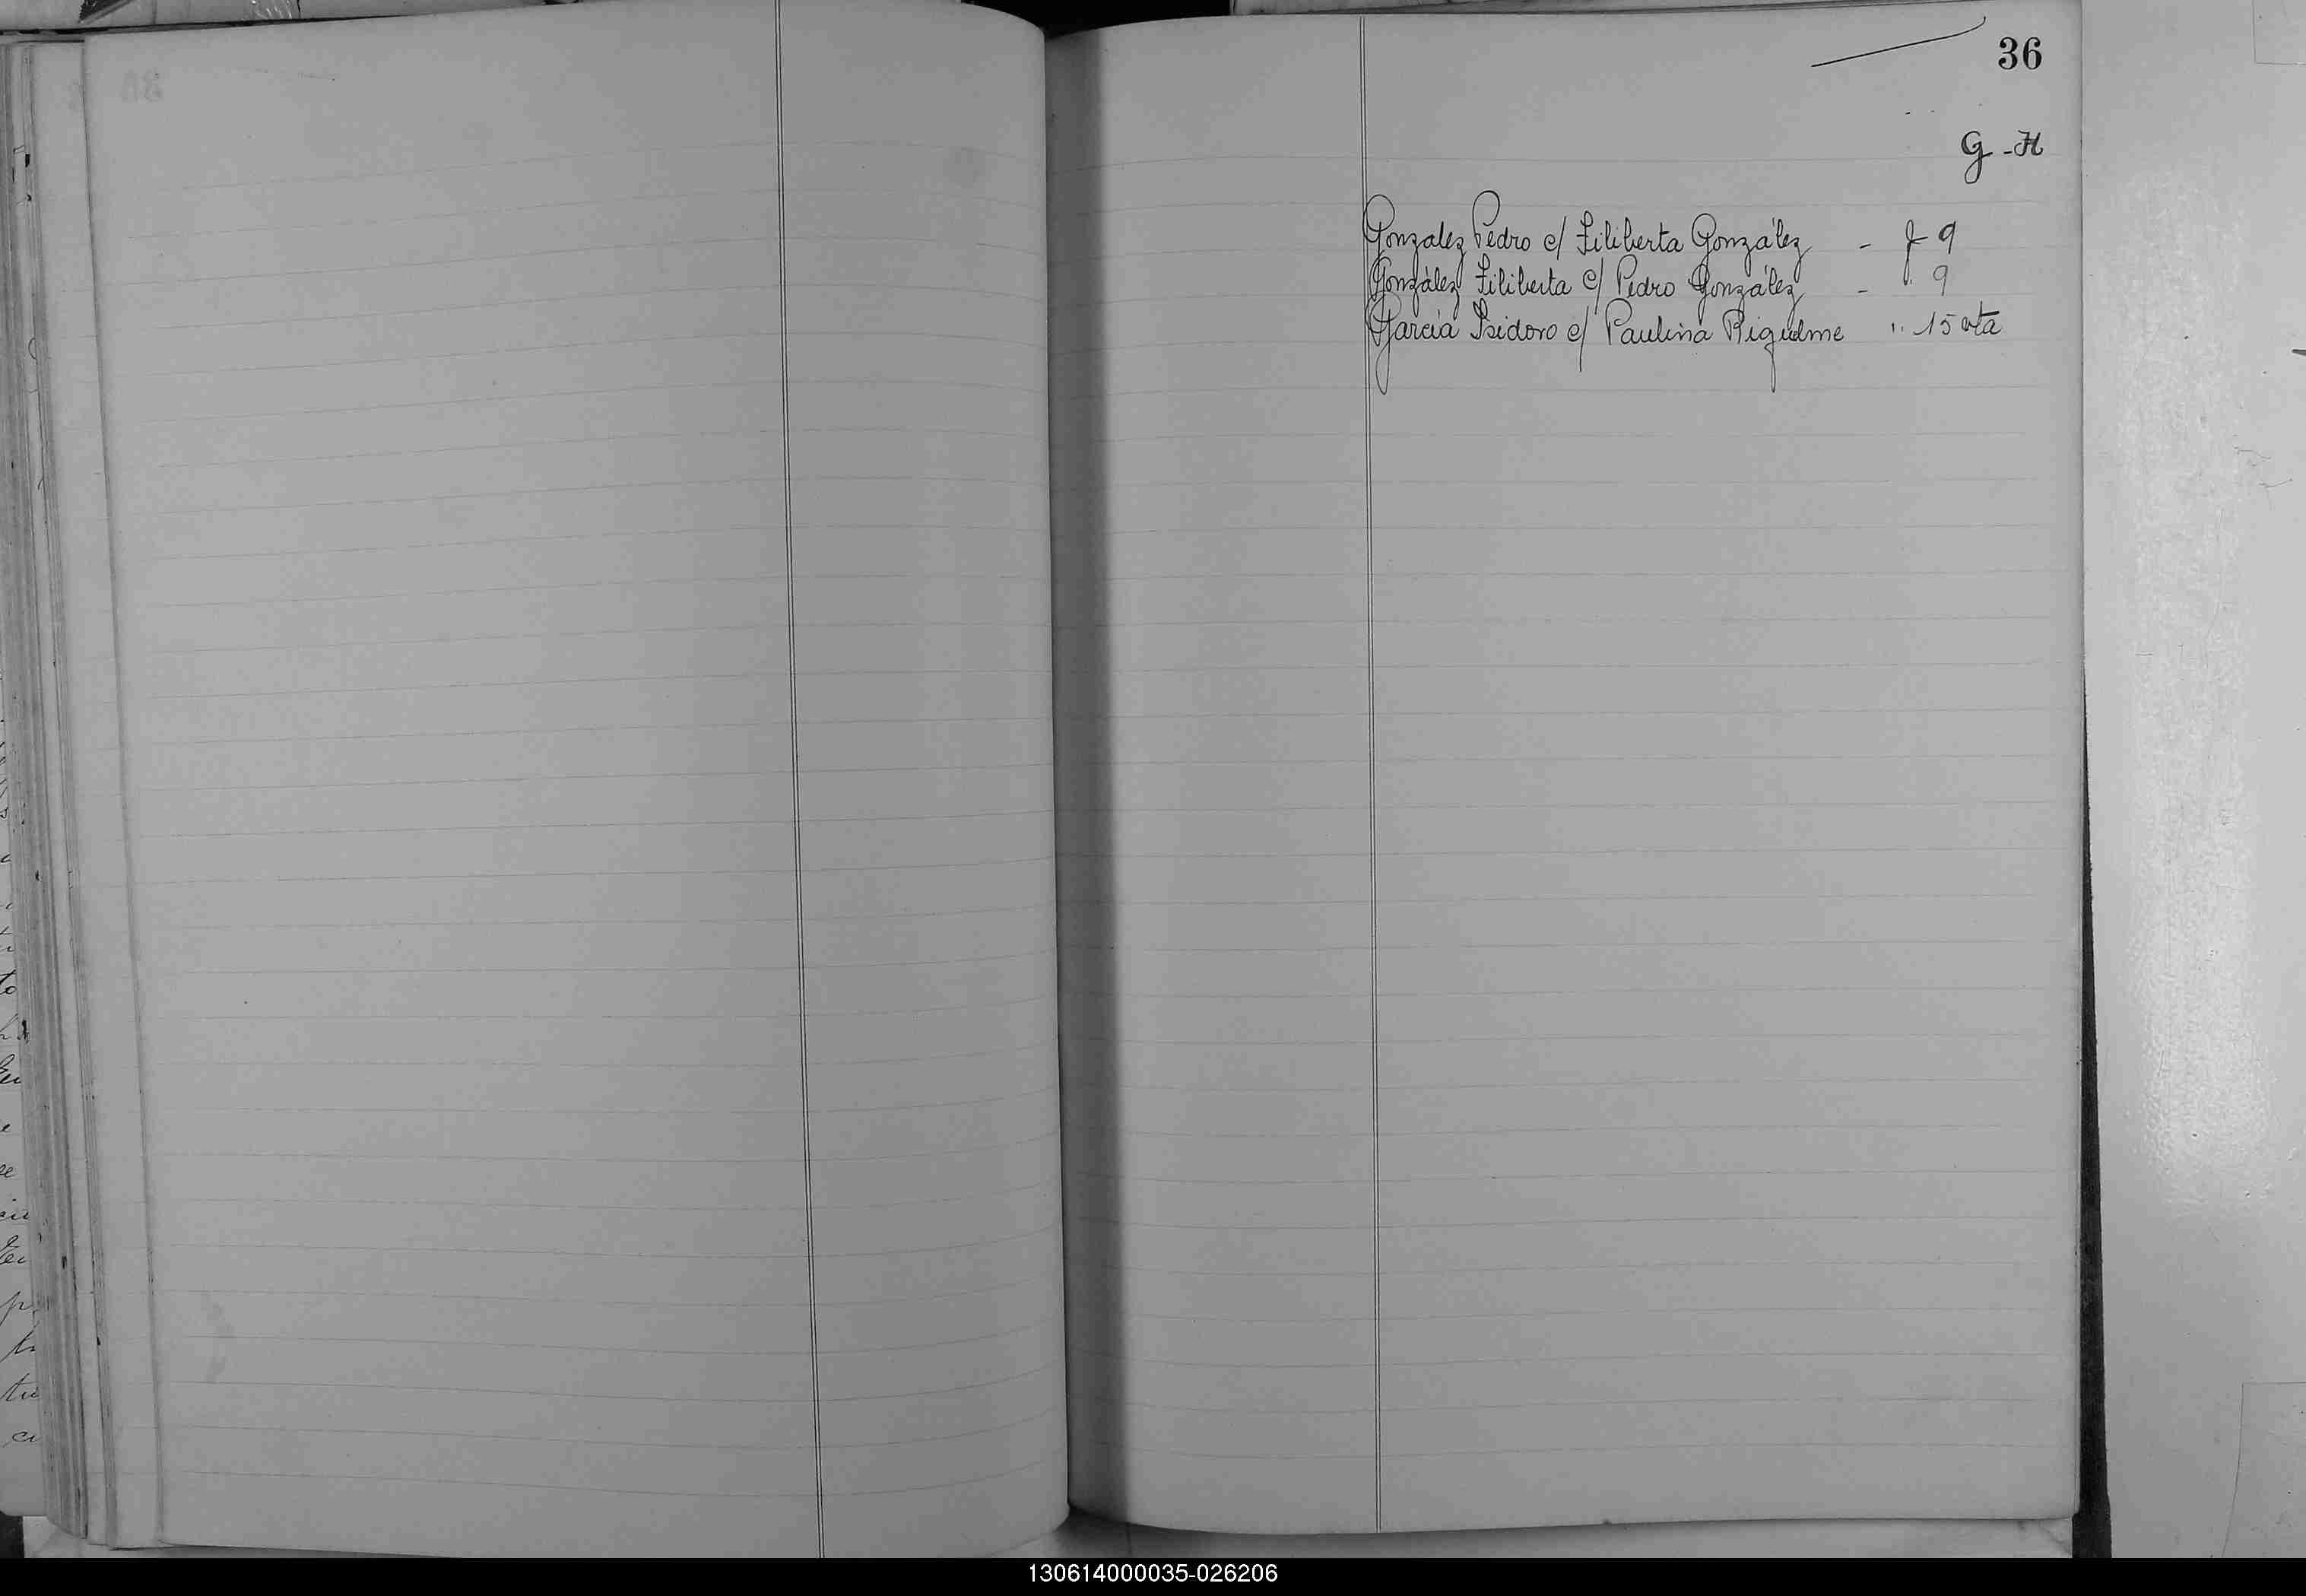 36
G-H
Gonzalez Pedro c/ Filiberta González - f 9
González Filiberta c/ Pedro González - " 9
Garcia Isidoro c/ Paulina Riquelme " 15 vta
130614000035-026206